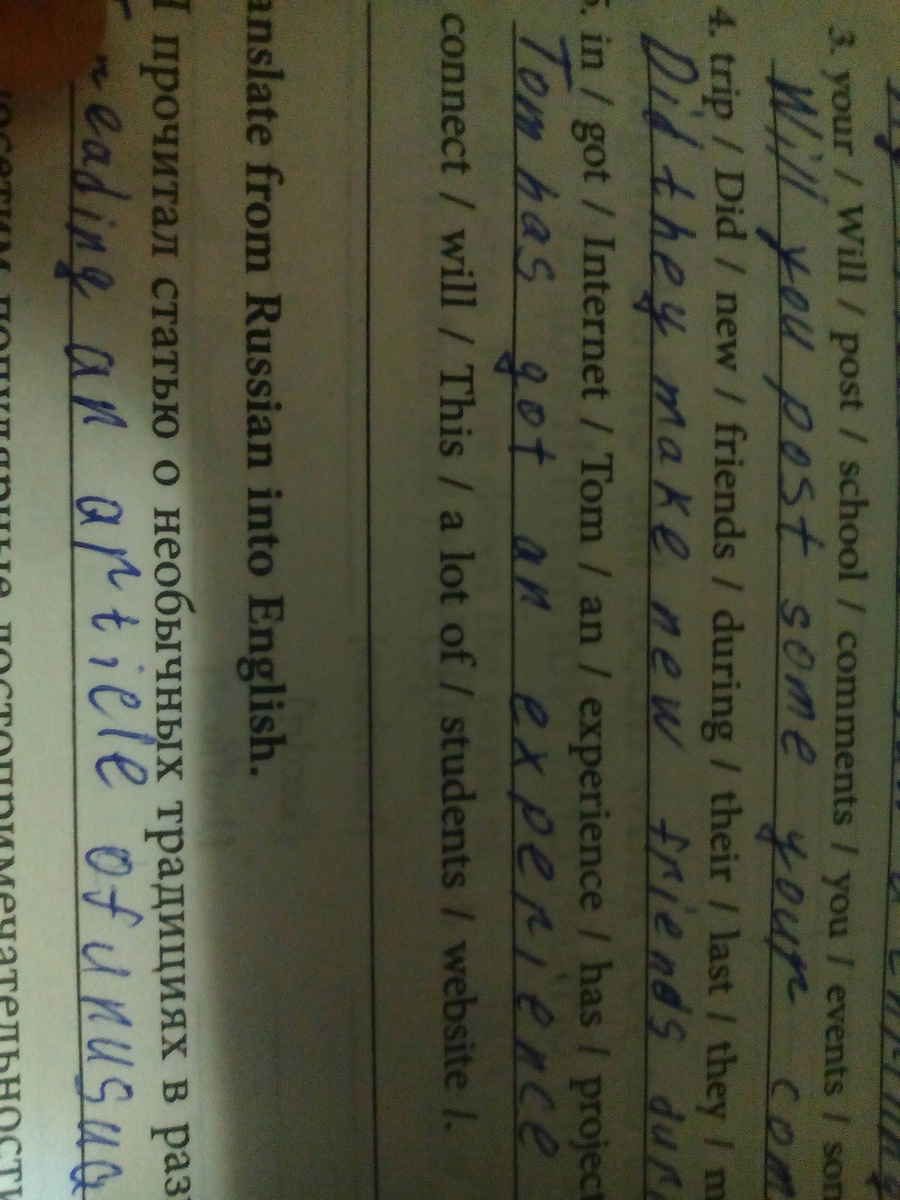 3. your / Will / post / school / comments / you / events /
Will you post some your com
4. trip / Did / new / friends / during / their / last / they /
Did they make new friends dur
in / got / Internet / Tom / an / experience / has / project
Tom has got an experience
connect / will / This / a lot of / students / website /.
anslate from Russian into English.
Я прочитал статью о необычных традициях в раз
reading an article of unusua
посетим популярные достопримечательности